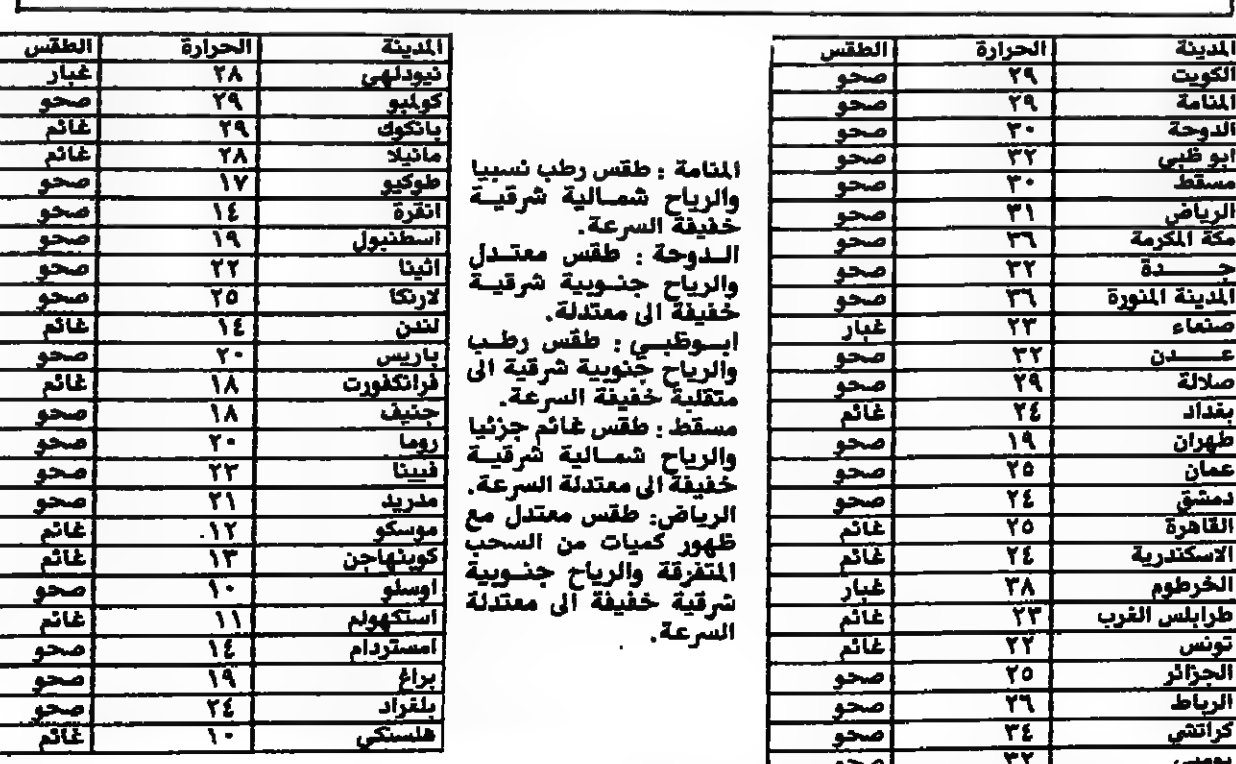 المدينة الحرارة الطقس
الكويت ٢٩ صحو
المنامة ٢٩ صحو
الدوحة ٣٠ صحو
ابو ظبي ٣٢ صحو
مسقط ٣٠ صحو
الرياض ٣١ صحو
مكة المكرمة ٣٦ صحو
جـــدة ٣٢ صحو
المدينة المنورة ٣٦ صحو
صنعاء ٢٣ غبار
عــــدن ٣٢ صحو
صلالة ٢٩ صحو
بغداد ٢٤ غائم
طهران ١٩ صحو
عمان ٢٥ صحو
دمشق ٢٤ صحو
القاهرة ٢٥ غائم
الاسكندرية ٢٤ غائم
الخرطوم ٣٨ غبار
طرابلس الغرب ٢٣ غائم
تونس ٢٢ غائم
الجزائر ٢٥ صحو
الرباط ٢٦ صحو
كراتشي ٣٤ صحو
بومبي ٣٢ صحو
المنامة : طقس رطب نسبيا
والرياح شمــالية شرقيــة
خفيفة السرعة.
الــدوحة : طقس معتــدل
والرياح جنــوبية شرقيــة
خفيفة الى معتدلة.
ابــوظبــي : طقس رطــب
والرياح جنوبية شرقية الى
متقلبة خفيفة السرعة.
مسقط : طقس غائم جزئيا
والرياح شمــالية شرقيــة
خفيفة الى معتدلة السرعة.
الرياض: طقس معتدل مع
ظهور كميات من السحب
المتفرقة والرياح جنــوبية
شرقية خفيفة الى معتدلة
السرعة.
المدينة الحرارة الطقس
نيودلهي ٢٨ غبار
كولمبو ٢٩ صحو
بانكوك ٢٩ غائم
مانيلا ٢٨ غائم
طوكيو ١٧ صحو
انقرة ١٤ صحو
اسطنبول ١٩ صحو
اثينا ٢٢ صحو
لارنكا ٢٥ صحو
لندن ١٤ غائم
باريس ٢٠ صحو
فرانكفورت ١٨ غائم
جنيف ١٨ صحو
روما ٢٠ صحو
فيينا ٢٣ صحو
مدريد ٢١ صحو
موسكو ١٢ غائم
كوبنهاجن ١٣ غائم
اوسلو ١٠ صحو
استكهولم ١١ غائم
امستردام ١٤ صحو
براغ ١٩ صحو
بلغراد ٢٤ صحو
هلسنكي ١٠ غائم